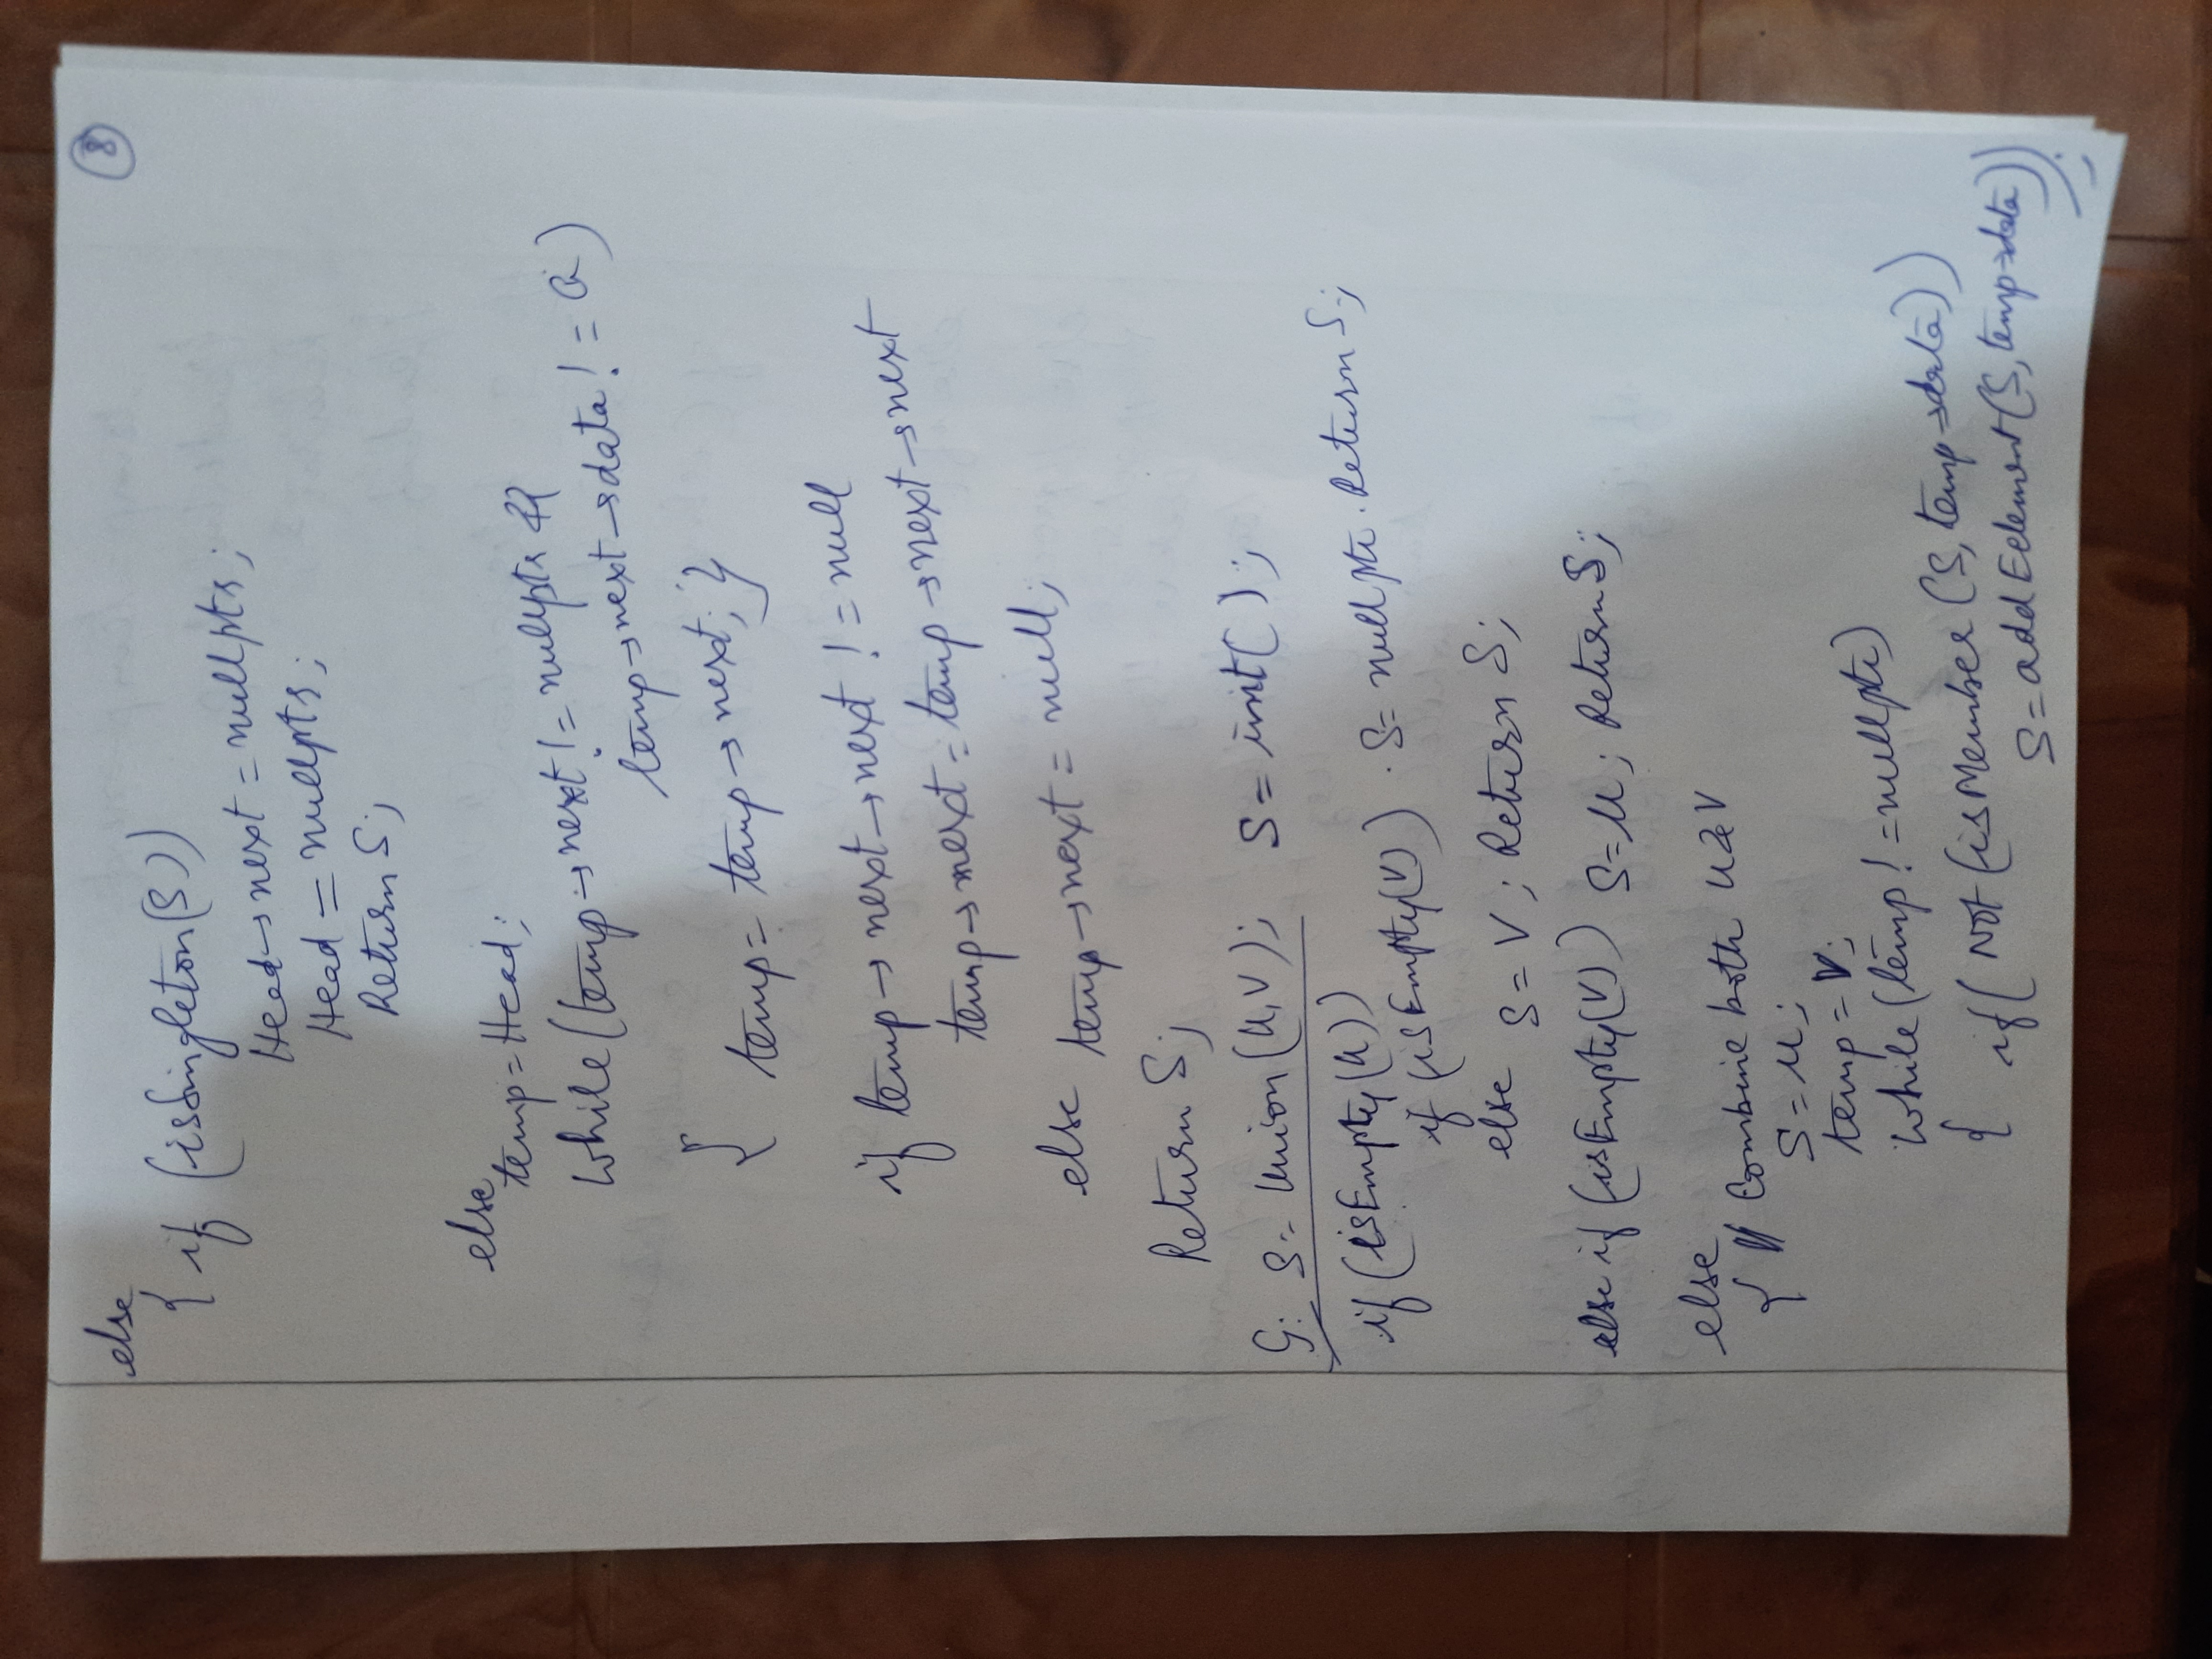 8
else
{ if (isSingleton(S))
Head→next = nullptr;
Head = nullptr;
Return S;
else
temp = Head;
while (temp→next != nullptr &&
temp→next→data != a)
{ temp = temp→next; }
if temp→next→next != null
temp→next = temp→next→next
else temp→next = null;
Return S;
G: S = Union(U,V); S = init( );
if (isEmpty(U))
if (isEmpty(V)) . S = nullptr . Return S;
else S = V; Return S;
else if (isEmpty(V)) S = U; Return S;
else
{ // Combine both U & V
S = U;
temp = V;
while (temp != nullptr)
{ if( Not (isMember (S, temp→data))
S = add Eelement (S, temp→data));